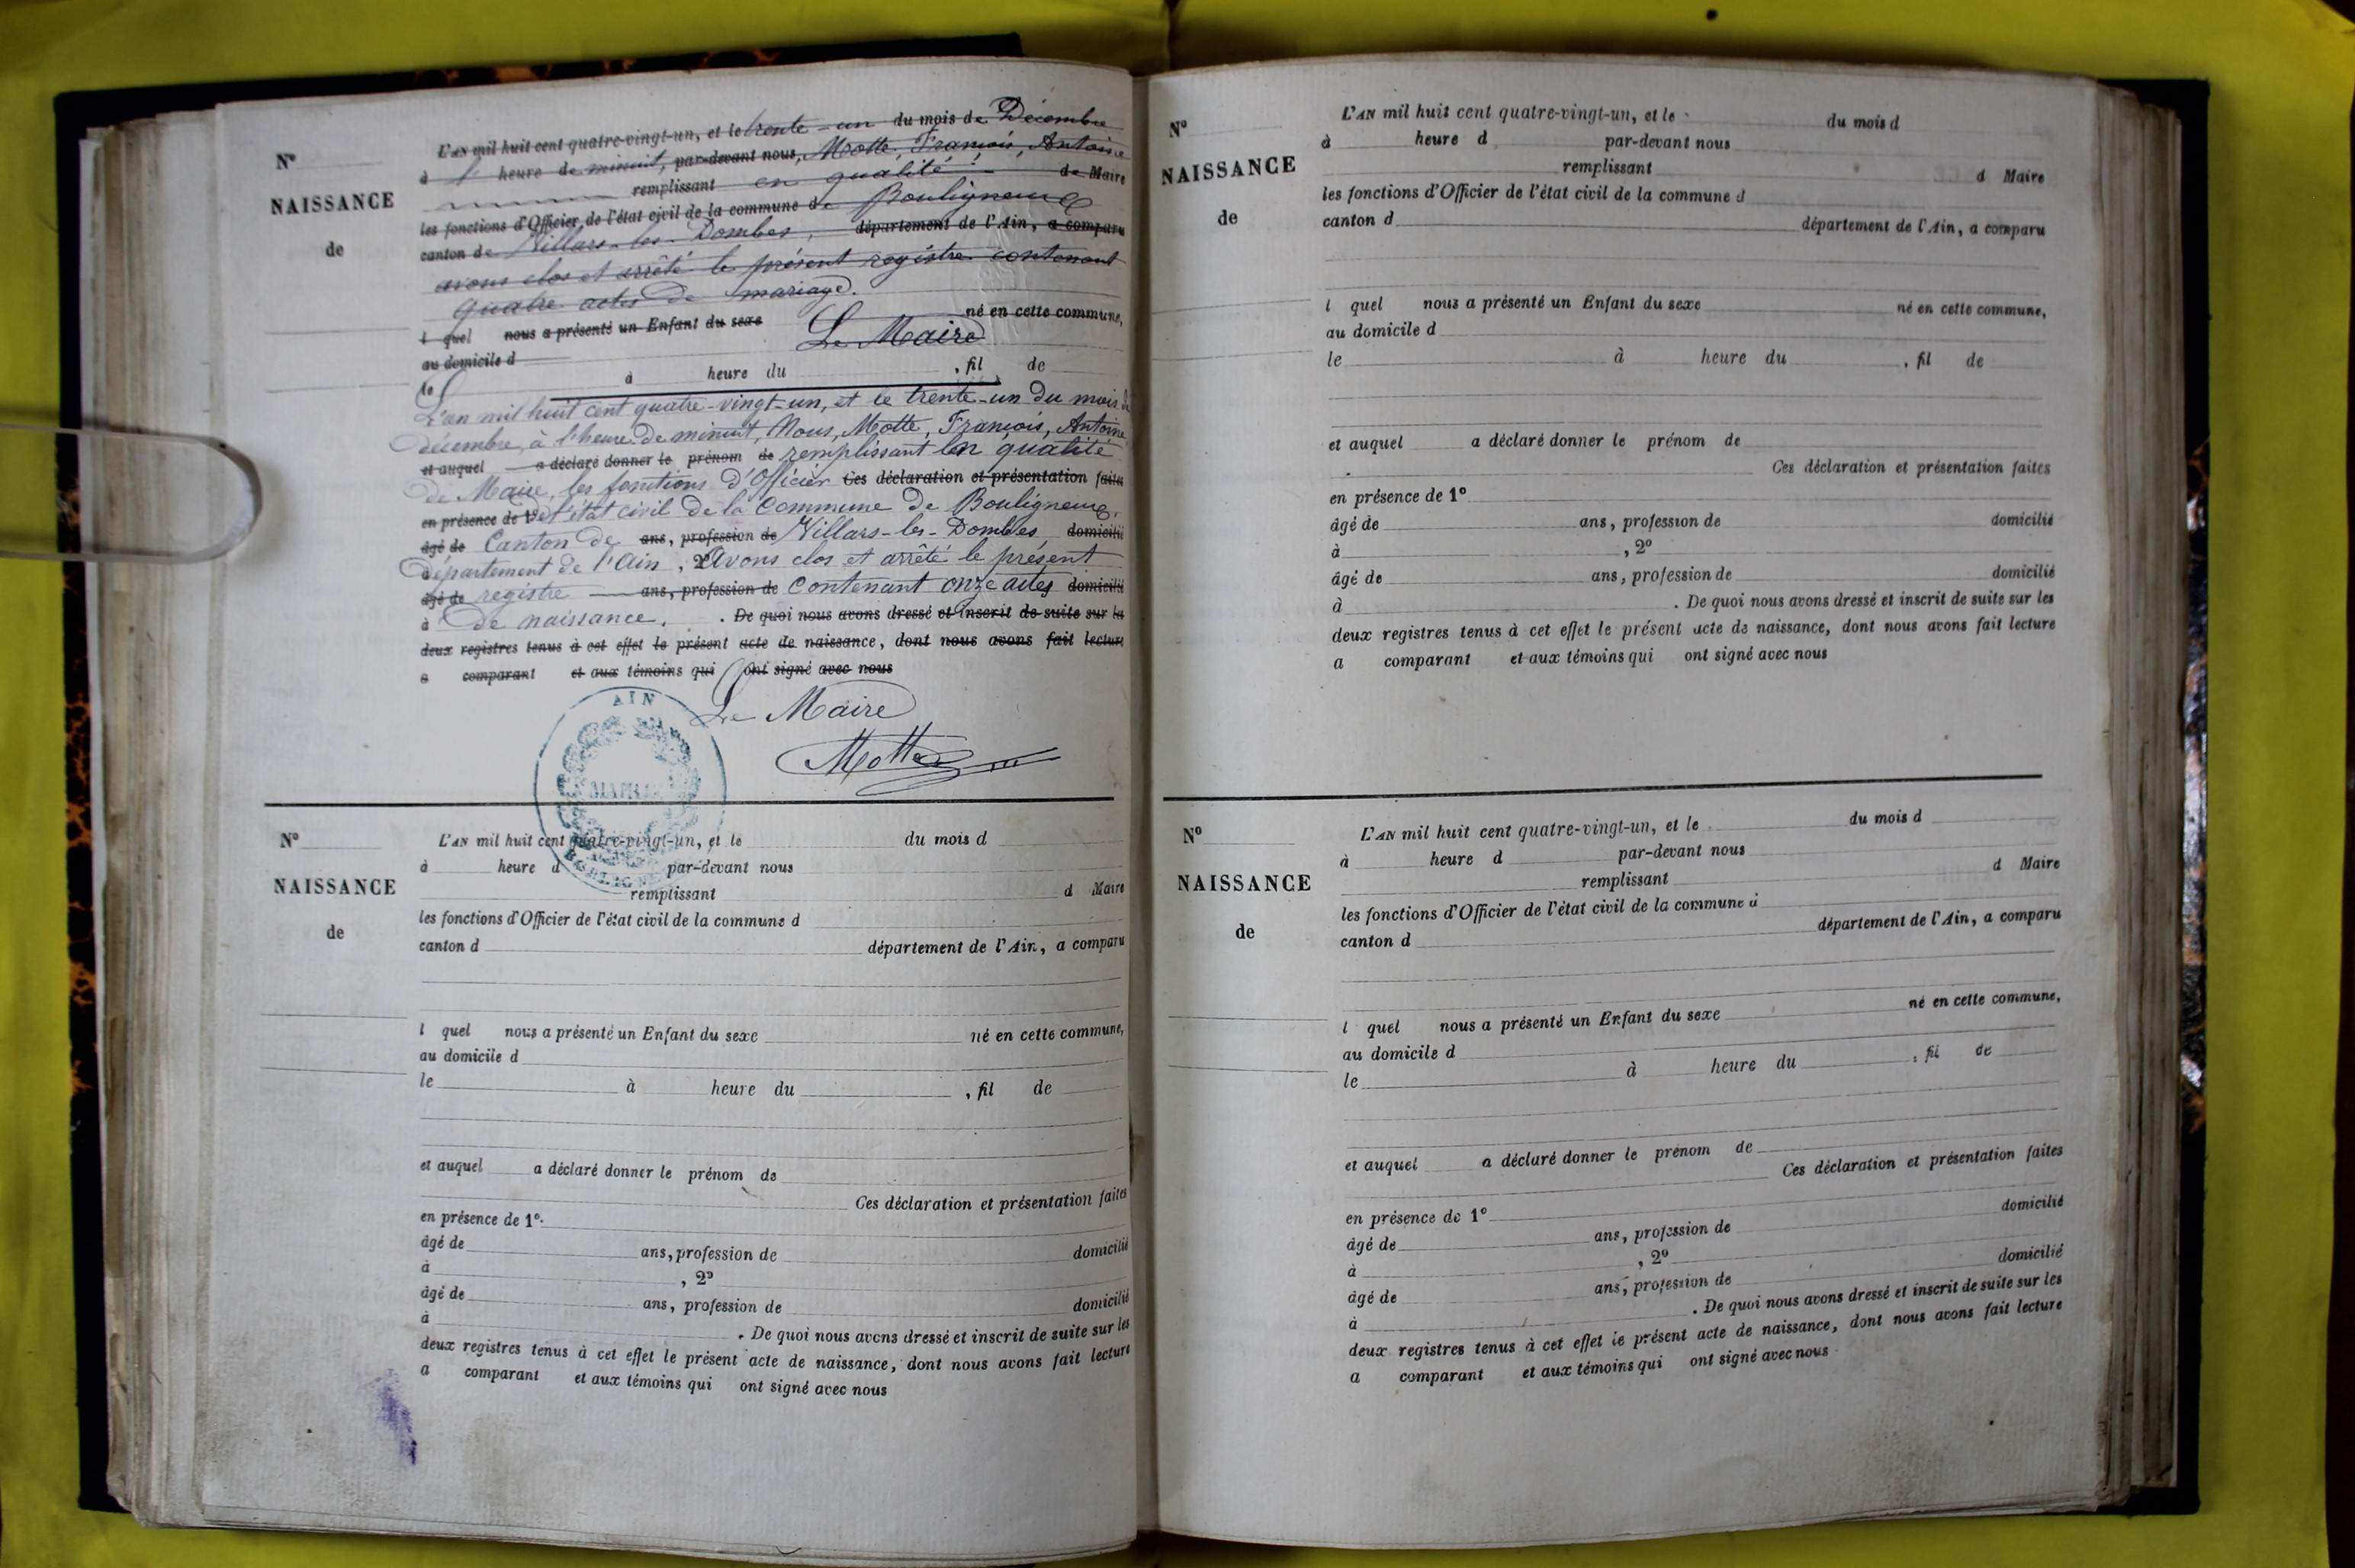 N°
NAISSANCE
de
L'AN mil huit cent quatre-vingt-un, et le trente-un du mois de Décembre
à l' heure de minuit, par-devant nous, Motte, François, Antoine
remplissant en qualité de Maire
les fonctions d'Officier de l'état civil de la commune de Bouligneux
canton de Villars-les-Dombes, département de l'Ain, a comparu
avons clos et arrêté le présent registre contenant
quatre actes de mariage.
l quel nous a présenté un Enfant du sexe né en cette commune,
Le Maire
au domicile d
le à heure du , fil de
L'an mil huit cent quatre-vingt-un, et le trente-un du mois de
décembre, à l'heure de minuit, Nous, Motte, François, Antoine
et auquel a déclaré donner le prénom de remplissant en qualité
de Maire, les fonctions d'Officier Ces déclaration et présentation faites
en présence de 1° de l'état civil de la Commune de Bouligneux,
âgé de Canton de ans, profession de Villars-les-Dombes, domicilié
à département de l'Ain, Avons clos et arrêté le présent
âgé de registre ans, profession de contenant onze actes domicilié
à de naissance. . De quoi nous avons dressé et inscrit de suite sur les
deux registres tenus à cet effet le présent acte de naissance, dont nous avons fait lecture
a comparant et aux témoins qui ont signé avec nous
Le Maire
Motte
AIN
MAIRIE
N°
NAISSANCE
de
L'AN mil huit cent quatre-vingt-un, et le du mois d
à heure d par-devant nous
remplissant d Maire
les fonctions d'Officier de l'état civil de la commune d
canton d département de l'Ain, a comparu
l quel nous a présenté un Enfant du sexe né en cette commune,
au domicile d
le à heure du , fil de
et auquel a déclaré donner le prénom de
Ces déclaration et présentation faites
en présence de 1°
âgé de ans, profession de domicilié
à , 2°
âgé de ans, profession de domicilié
à . De quoi nous avons dressé et inscrit de suite sur les
deux registres tenus à cet effet le présent acte de naissance, dont nous avons fait lecture
a comparant et aux témoins qui ont signé avec nous
N°
NAISSANCE
de
L'AN mil huit cent quatre-vingt-un, et le du mois d
à heure d par-devant nous
remplissant d Maire
les fonctions d'Officier de l'état civil de la commune d
canton d département de l'Ain, a comparu
l quel nous a présenté un Enfant du sexe né en cette commune,
au domicile d
le à heure du , fil de
et auquel a déclaré donner le prénom de
Ces déclaration et présentation faites
en présence de 1°
âgé de ans, profession de domicilié
à , 2°
âgé de ans, profession de domicilié
à . De quoi nous avons dressé et inscrit de suite sur les
deux registres tenus à cet effet le présent acte de naissance, dont nous avons fait lecture
a comparant et aux témoins qui ont signé avec nous
N°
NAISSANCE
de
L'AN mil huit cent quatre-vingt-un, et le du mois d
à heure d par-devant nous
remplissant d Maire
les fonctions d'Officier de l'état civil de la commune d
canton d département de l'Ain, a comparu
l quel nous a présenté un Enfant du sexe né en cette commune,
au domicile d
le à heure du , fil de
et auquel a déclaré donner le prénom de
Ces déclaration et présentation faites
en présence de 1°
âgé de ans, profession de domicilié
à , 2°
âgé de ans, profession de domicilié
à . De quoi nous avons dressé et inscrit de suite sur les
deux registres tenus à cet effet le présent acte de naissance, dont nous avons fait lecture
a comparant et aux témoins qui ont signé avec nous